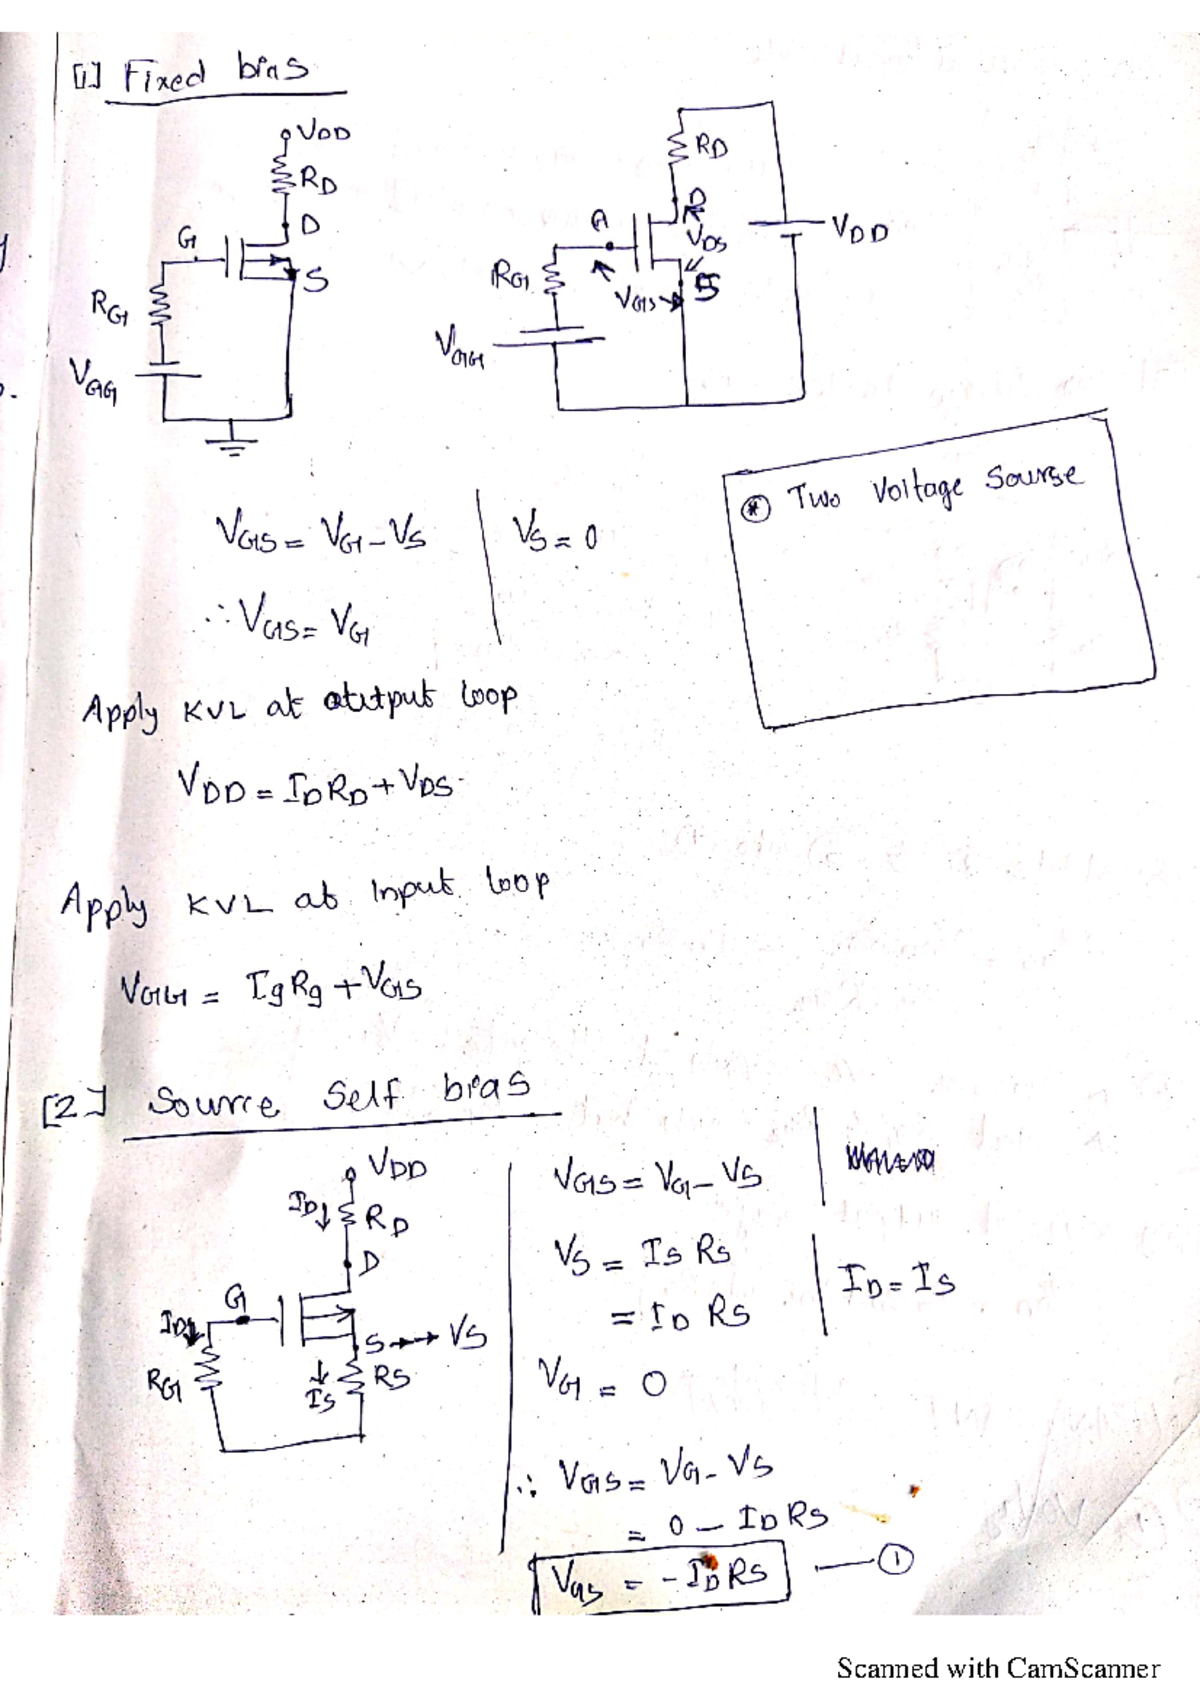 [1] Fixed bias
VDD
RD
D
G
S
RG
VGG
RD
D
VDS
G
S
RG
VGS
VGG
VDD
VGS = VG - VS
VS = 0
∴ VGS = VG
* Two Voltage Sourse
Apply KVL at output loop
VDD = IDRD + VDS
Apply KVL at Input loop
VGG = IgRg + VGS
[2] Source Self bias
VDD
ID
RD
D
G
S
VS
RG
IS
RS
VGS = VG - VS
VS = IS RS
= ID RS
ID = IS
VG = 0
∴ VGS = VG - VS
= 0 - ID RS
VGS = - ID RS
1
Scanned with CamScanner